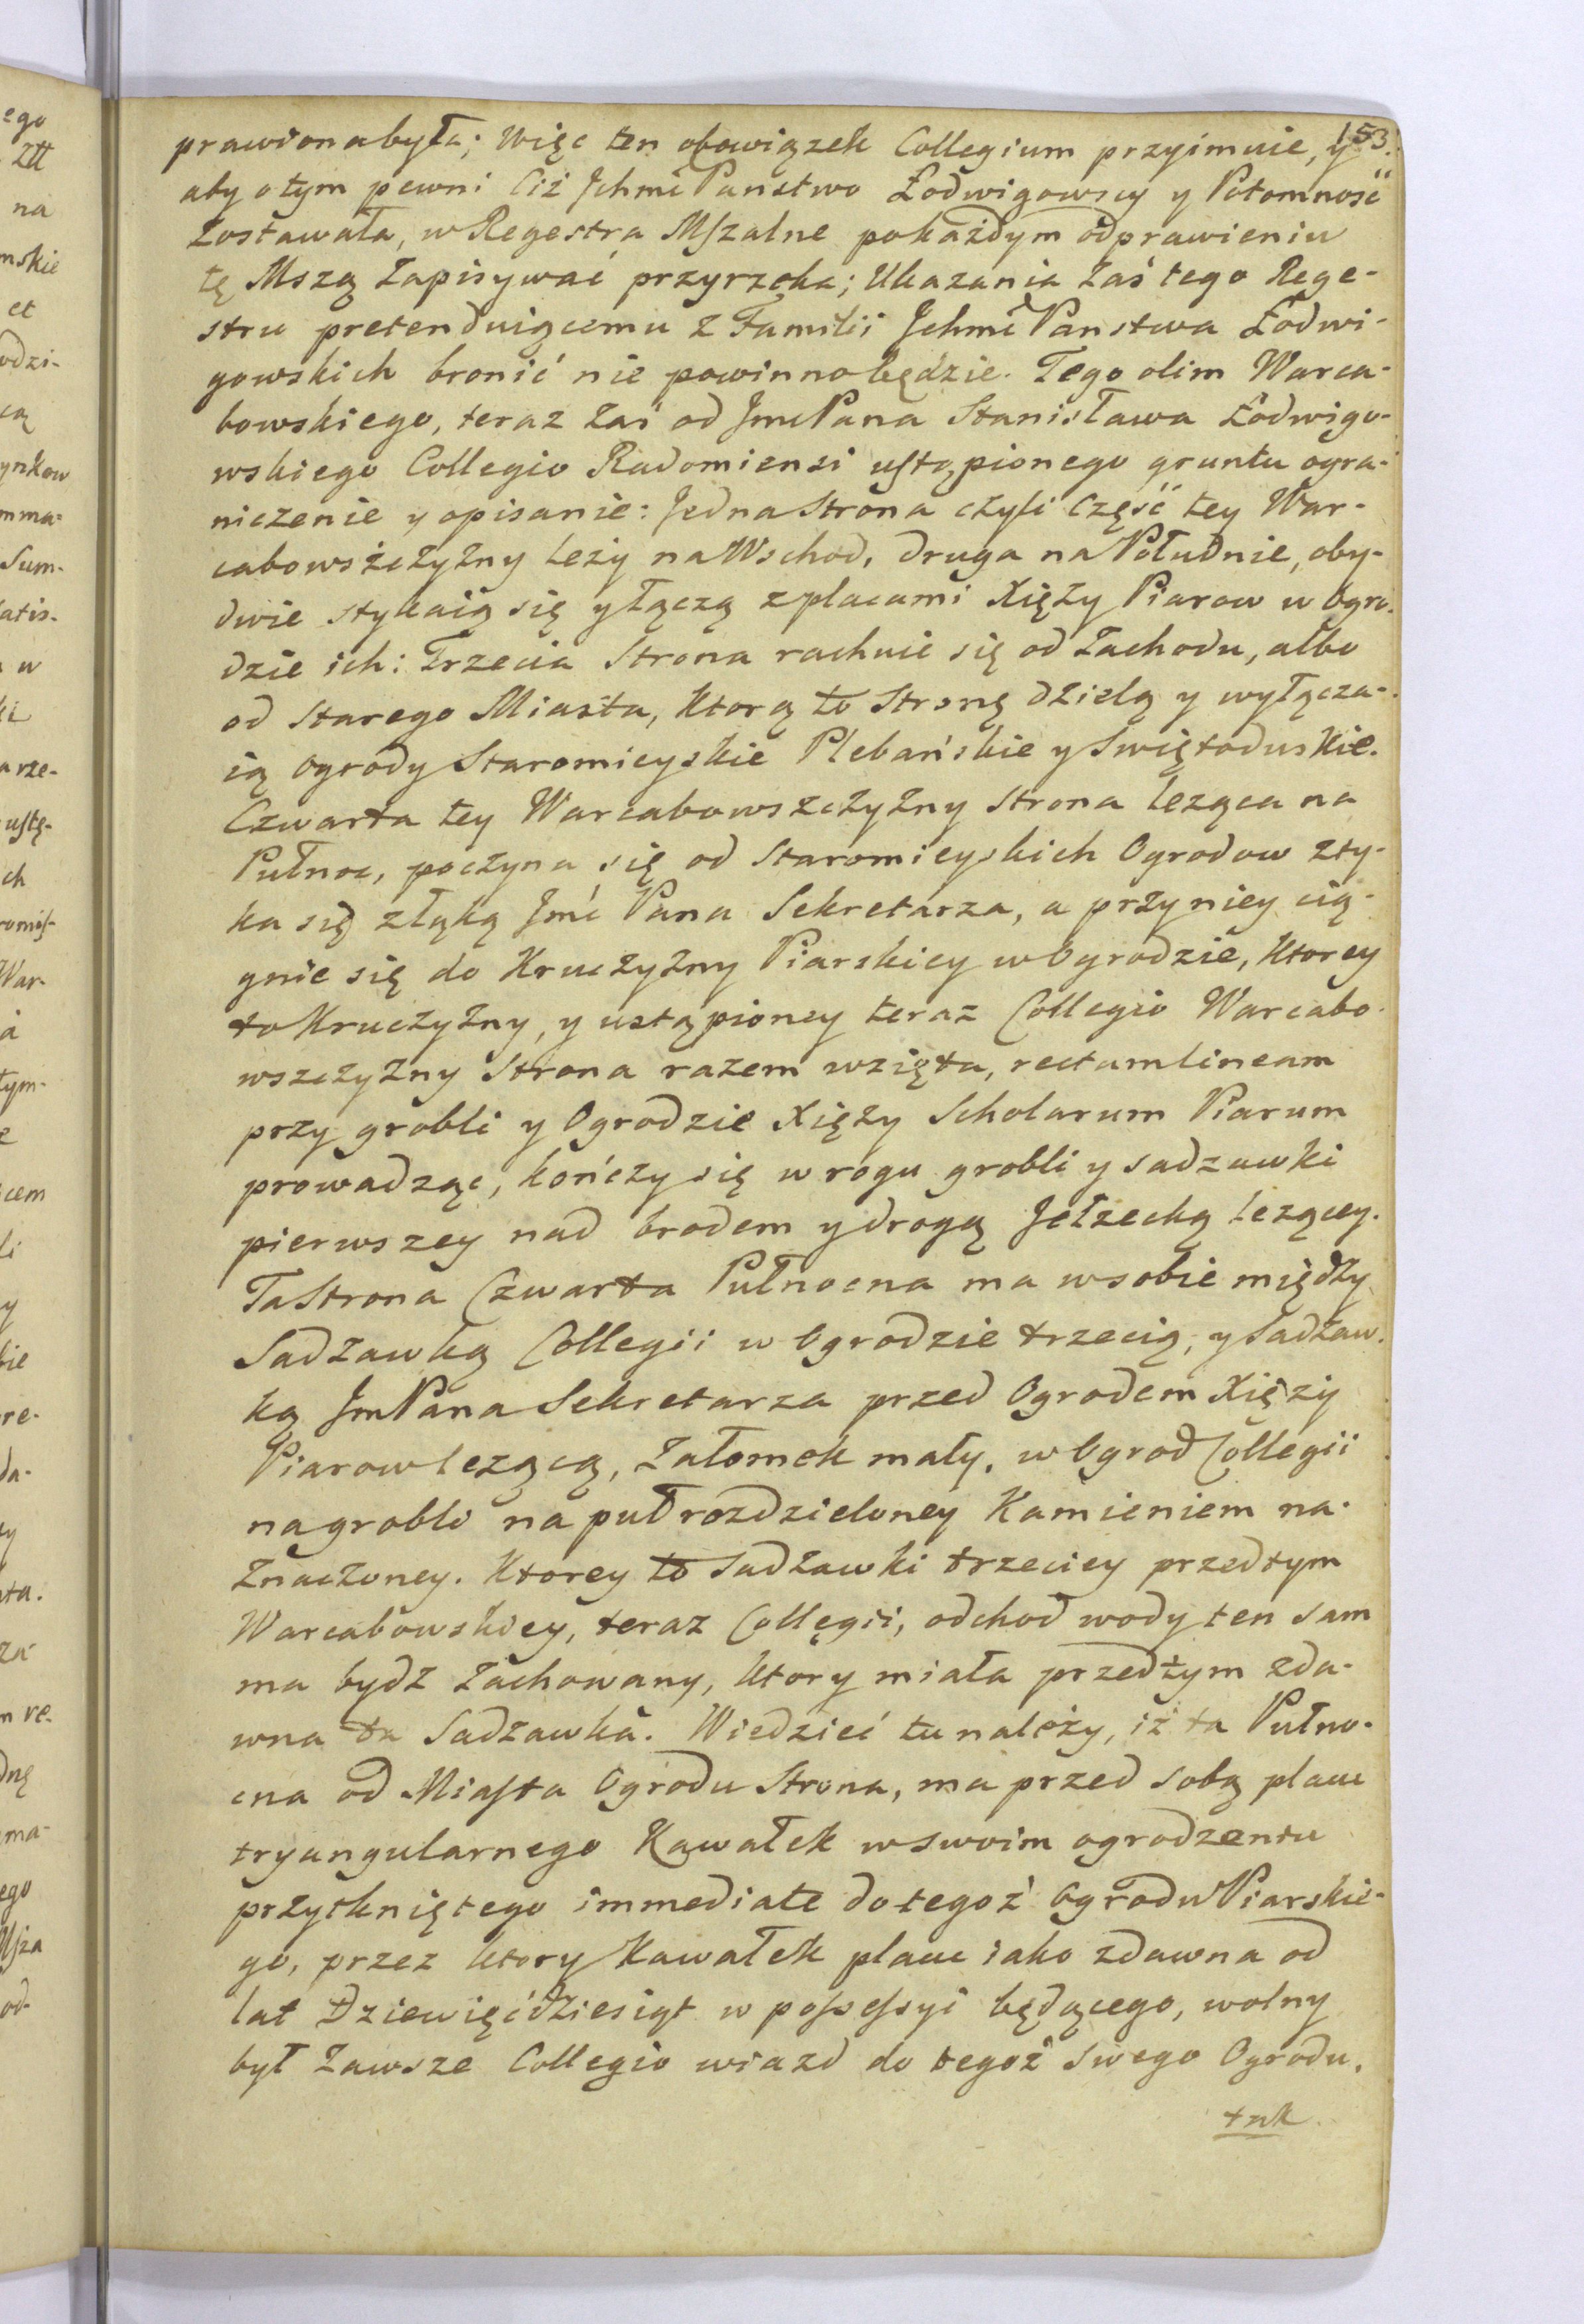 153.
prawiona była; Więc ten obowiązek Collegium przyimuie, y
aby o tym pewni Ciż Jchmć Panstwo Łodwigowscy y Potomność
Zostawała, w Regestra Mszalne po każdym odprawieniu
tę Mszą Zapisywać przyrzeka; Ukazania Zaś tego Rege-
stru pretenduiącemu Z Familii Jchmć Panstwa Łodwi-
gowskich bronić nie powinno będzie. Tego olim Warca-
bowskiego, teraz Zaś od Jmc Pana Stanisława Łodwigo-
wskiego Collegio Radomiensi ustąpionego gruntu ogra-
niczenie y opisanie: Jedna Strona czyli Część tey War-
cabowszczyzny leży na Wschod, druga na Południe, oby-
dwie stykaią się y łączą z placami Xięży Piarow w Ogro-
dzie ich: Trzecia Strona rachuie się od Zachodu, albo
od Starego Miasta, Ktorą to Stronę dzielą y wyłącza-
ią Ogrody Staromieyskie Plebańskie y Swiętoduskie.
Czwarta tey Warcabowszczyzny Strona leząca na
Pułnoc, poczyna się od Staromieyskich Ogrodow zty-
ka się z łąką Jmć Pana Sekretarza, a przy niey cią-
gnie się do Kruczyzny Piarskiey w Ogrodzie, Ktorey
to Kruczyzny, y ustąpioney teraz Collegio Warcabo-
wszczyzny Strona razem wzięta, rectam lineam
przy grobli y Ogrodzie Xięży Scholarum Piarum
prowadząc, kończy się w rogu grobli y sadzawki
pierwszey nad brodem y drogą Jełzecką lezącey.
Ta Strona Czwarta Pułnocna ma w sobie między
Sadzawką Collegii w Ogrodzie trzecią, y Sadzaw-
ką Jm Pana Sekretarza przed Ogrodem Xięży
Piarow lezącą, Załomek mały, w Ogrod Collegii
na grobli na puł rozdzieloney Kamieniem na-
znaczoney. Ktorey to Sadzawki trzeciey przedtym
Warcabowskiey, teraz Collegii, odchod wody ten sam
ma bydz Zachowany, ktory miała przedtym zda-
wna ta Sadzawka. Wiedzieć tu należy, iż ta Pułno-
cna od Miasta Ogrodu Strona, ma przed sobą placu
tryangularnego Kawałek w swoim ogrodzeniu
przytkniętego immediate do tegoż Ogrodu Piarskie-
go, przez ktory Kawałek placu iako zdawna od
lat Dziewięćdziesiąt w possessyi będącego, wolny
był Zawsze Collegio wiazd do tegoż swego Ogrodu,
tak